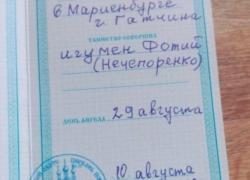 в Мариенбурге
г. Гатчина
ТАИНСТВО СОВЕРШИЛ
игумен Фотий
(Нечепоренко)
ДЕНЬ АНГЕЛА 29 августа
10 августа